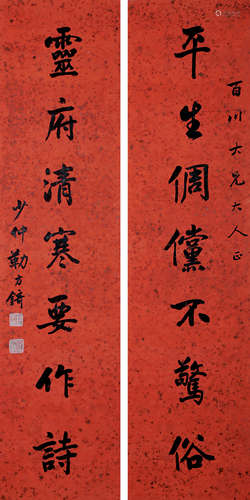 百川大兄大人正
平生倜儻不驚俗
靈府清寒要作詩
少仲勒方錡